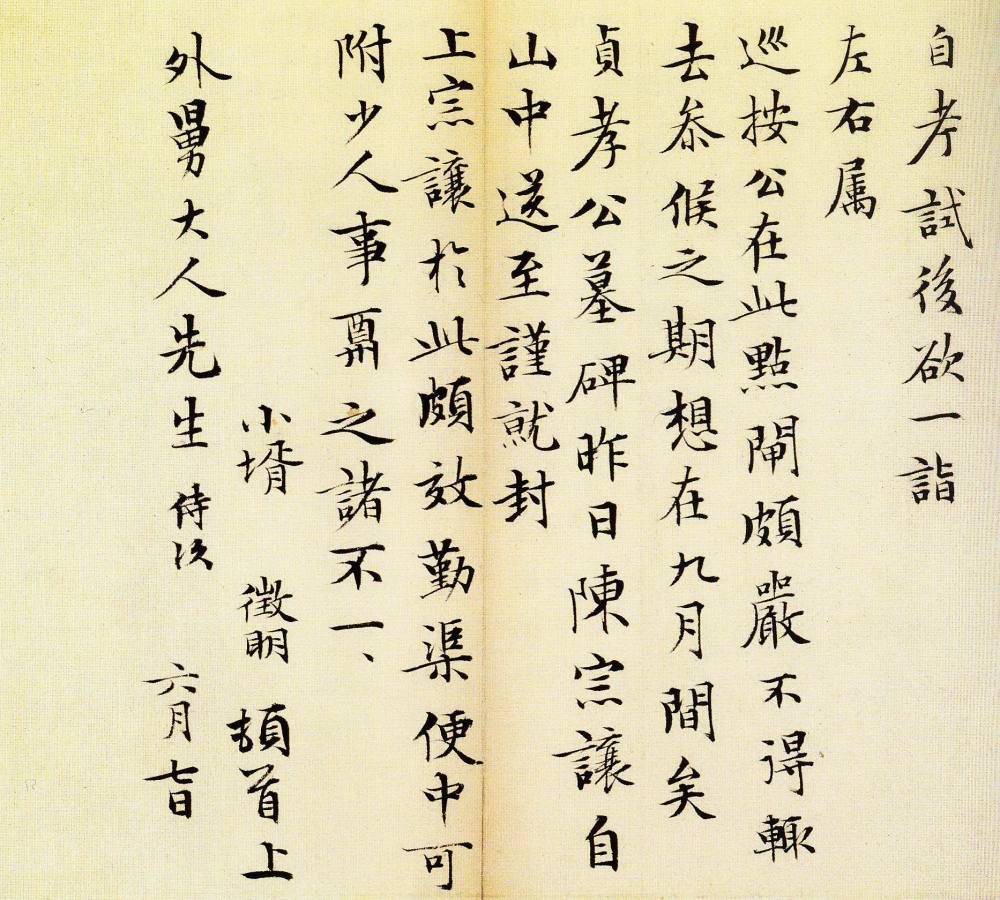 自考試後欲一詣
左右属
巡按公在此點閘頗嚴不得輙
去叅候之期想在九月間矣
貞孝公墓碑昨日陳宗讓自
山中送至謹就封
上宗讓於此頗效勤渠便中可
附少人事
之諸不一、
小壻 徵明 頓首上
外舅大人先生 侍次 六月七日